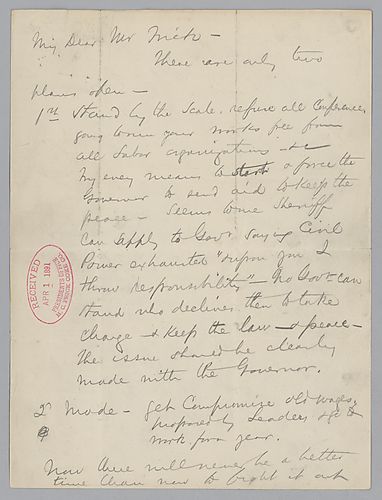 My Dear Mr Frick —
There are only two
plans open —
1st Stand by the Scale. refuse all Conference
going to run your works free from
all Labor organizations — &c
By every means to start & force the
Governor to send aid to keep the
peace — Seems to me Sheriff
can apply to Govr saying Civil
Power exhausted "upon you I
throw responsibility" — No Govr can
stand who declines then to take
charge & keep the law & peace —
The issue should be clearly
made with the Governor.
RECEIVED
APR 1 1891
2d Mode — get Compromise old wages,
proposed by Leaders & go to
work for a year.
Now there will never be a better
time than now to fight it out